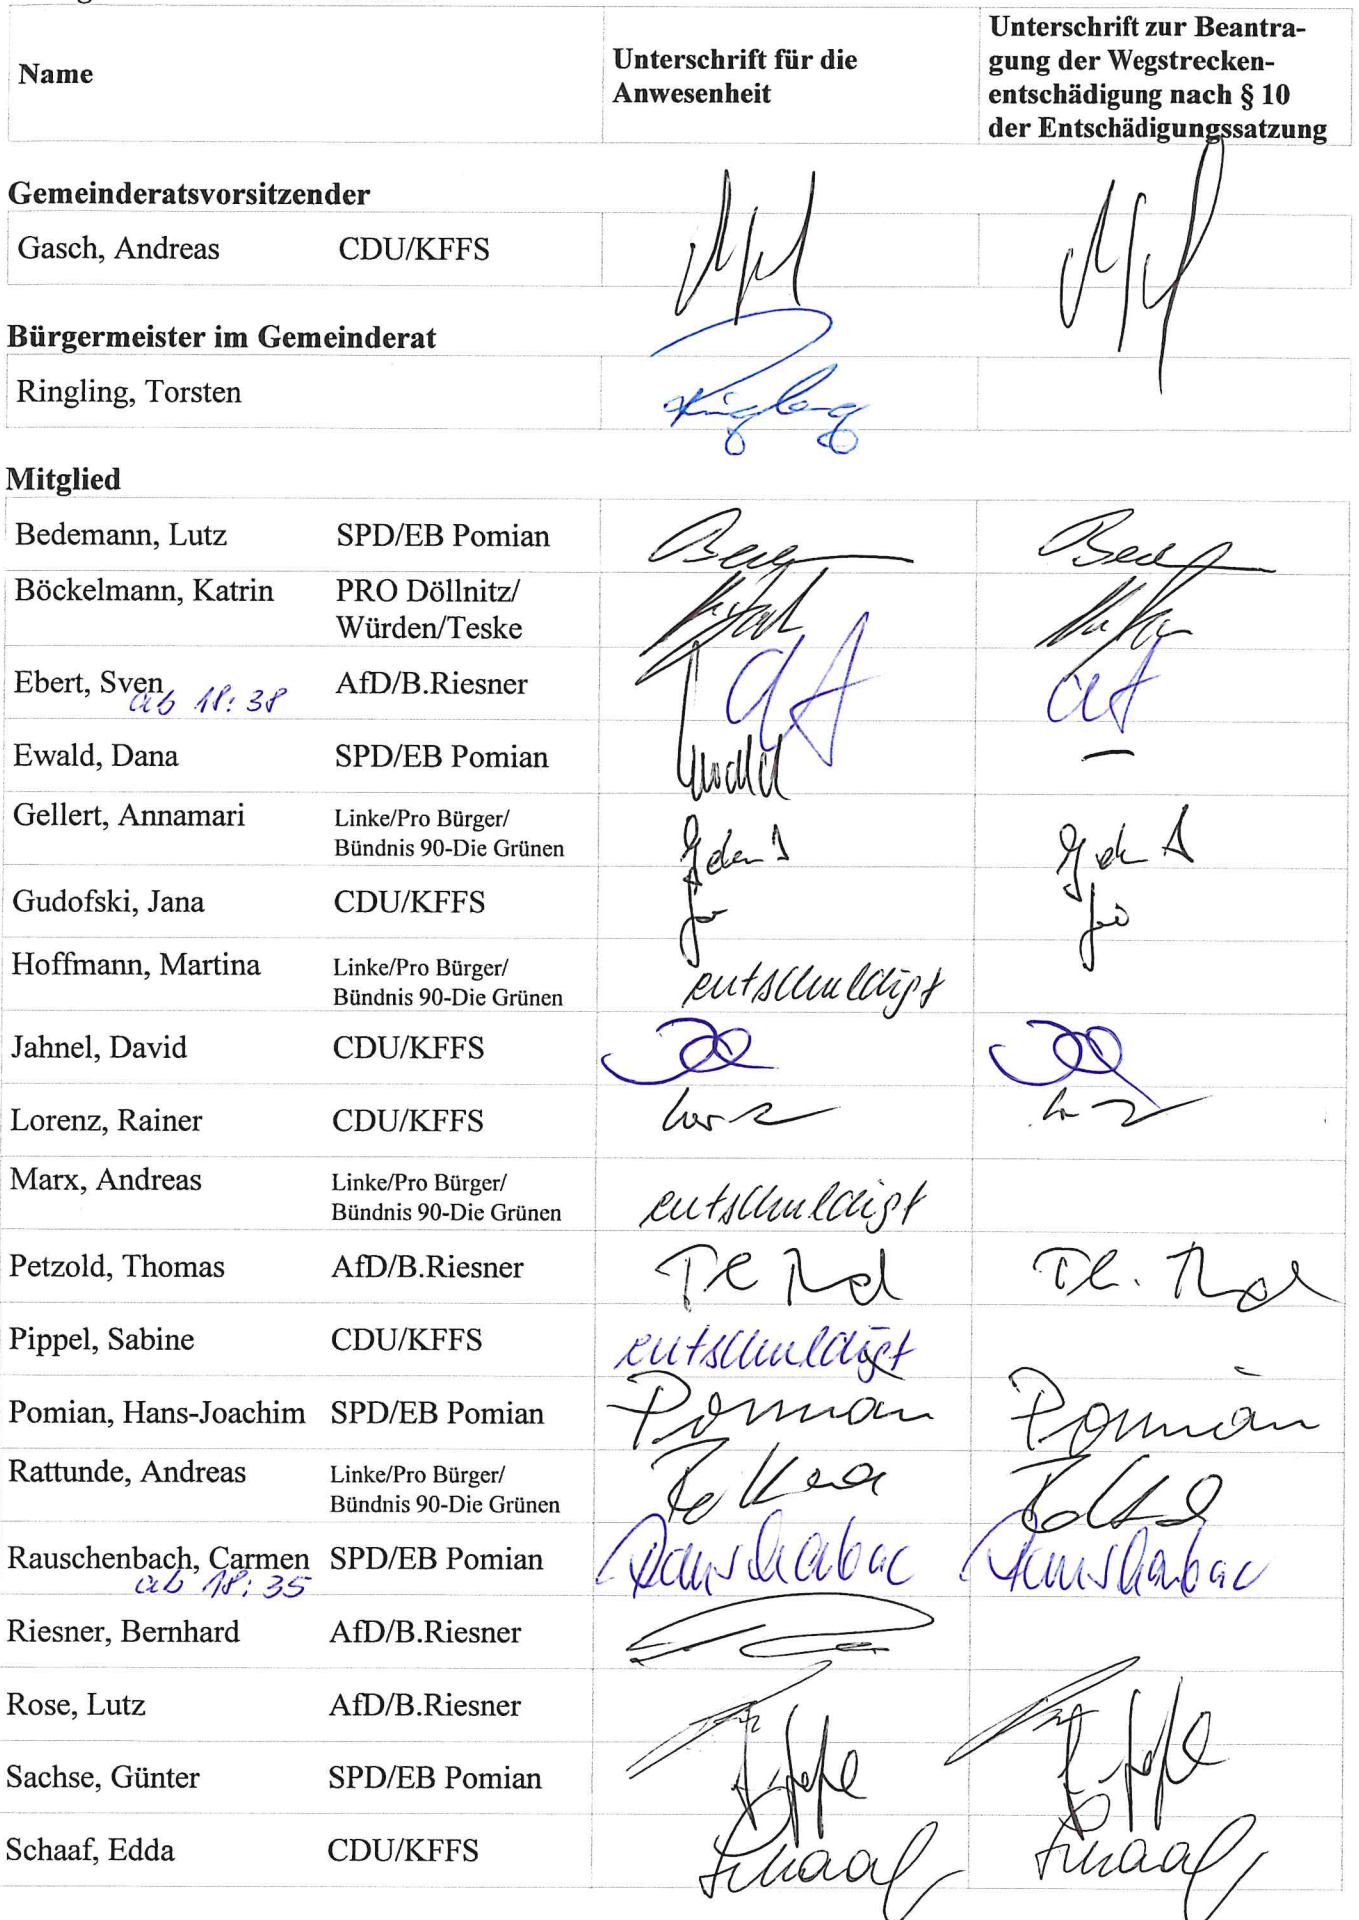 Name
Unterschrift für die
Anwesenheit
Unterschrift zur Beantra-
gung der Wegstrecken-
entschädigung nach § 10
der Entschädigungssatzung
Gemeinderatsvorsitzender
Gasch, Andreas CDU/KFFS
Bürgermeister im Gemeinderat
Ringling, Torsten
Mitglied
Bedemann, Lutz SPD/EB Pomian
Böckelmann, Katrin PRO Döllnitz/
Würden/Teske
Ebert, Sven AfD/B.Riesner
ab 18:38
Ewald, Dana SPD/EB Pomian —
Gellert, Annamari Linke/Pro Bürger/
Bündnis 90-Die Grünen
Gudofski, Jana CDU/KFFS
Hoffmann, Martina Linke/Pro Bürger/
Bündnis 90-Die Grünen
entschuldigt
Jahnel, David CDU/KFFS
Lorenz, Rainer CDU/KFFS
Marx, Andreas Linke/Pro Bürger/
Bündnis 90-Die Grünen
entschuldigt
Petzold, Thomas AfD/B.Riesner
Pippel, Sabine CDU/KFFS entschuldigt
Pomian, Hans-Joachim SPD/EB Pomian Pomian Pomian
Rattunde, Andreas Linke/Pro Bürger/
Bündnis 90-Die Grünen
Rauschenbach, Carmen SPD/EB Pomian
ab 18:35
Riesner, Bernhard AfD/B.Riesner
Rose, Lutz AfD/B.Riesner
Sachse, Günter SPD/EB Pomian
Schaaf, Edda CDU/KFFS Schaaf Schaaf